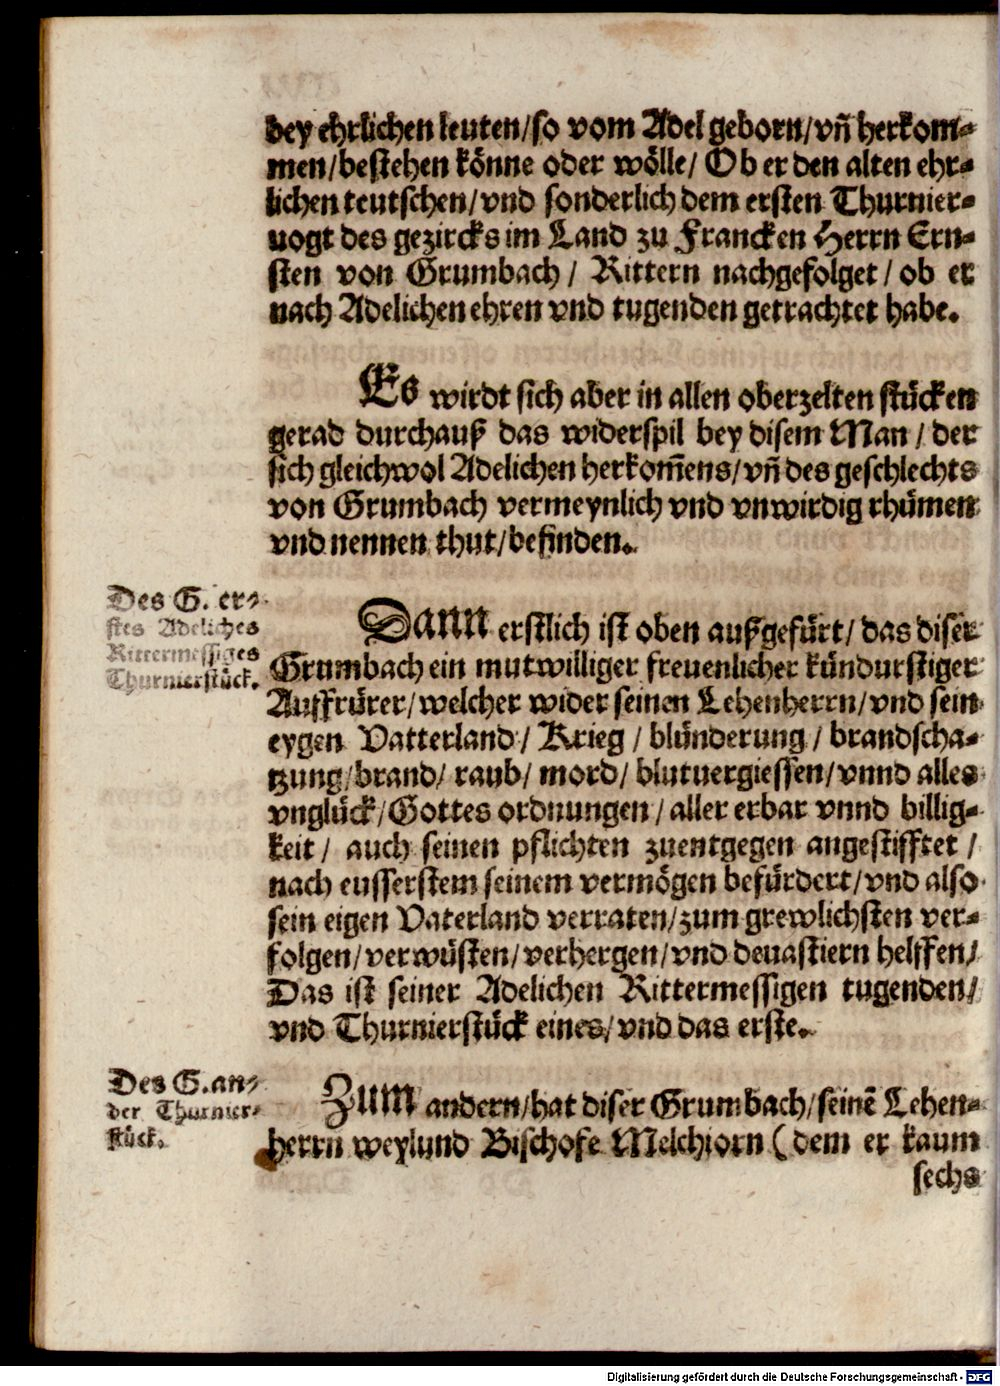 bey ehrlichen leuten/so vom Adel geborn/vñ herkom-
men/bestehen könne oder wölle/ Ob er den alten ehr-
lichen teutschen/vnd sonderlich dem ersten Thurnier-
uogt des gezircks im Land zu Francken Herrn Ern-
sten von Grumbach/ Rittern nachgefolget/ob er
nach Adelichen ehren vnd tugenden getrachtet habe.
Es wirdt sich aber in allen oberzelten stücken
gerad durchauß das widerspil bey disem Man/der
sich gleichwol Adelichen herkom̃ens/vñ des geschlechts
von Grumbach vermeynlich vnd vnwirdig rhümen
vnd nennen thut/befinden.
Des G. er-
stes Adeliches
Rittermessiges
Thurnierstück.
Dann erstlich ist oben außgefürt/das diser
Grumbach ein mutwilliger freuenlicher kündurstiger
Auffrürer/welcher wider seinen Lehenherrn/vnd sein
eygen Vatterland/ Krieg/ blünderung/ brandscha-
tzung/brand/ raub/ mord/ blutuergiessen/vnnd alles
vnglück/Gottes ordnungen/aller erbar vnnd billig-
keit/ auch seinen pflichten zuentgegen angestifftet/
nach eusserstem seinem vermögen befürdert/vnd also
sein eigen Vaterland verraten/zum grewlichsten ver-
folgen/verwüsten/verhergen/vnd deuastiern helffen/
Das ist seiner Adelichen Rittermessigen tugenden/
vnd Thurnierstück eines/vnd das erste.
Des G. an-
der Thurnier-
stück.
Zum andern/hat diser Grumbach/seinē Lehen-
herrn weylund Bischofe Melchiorn (dem er kaum
sechs
Digitalisierung gefördert durch die Deutsche Forschungsgemeinschaft - DFG